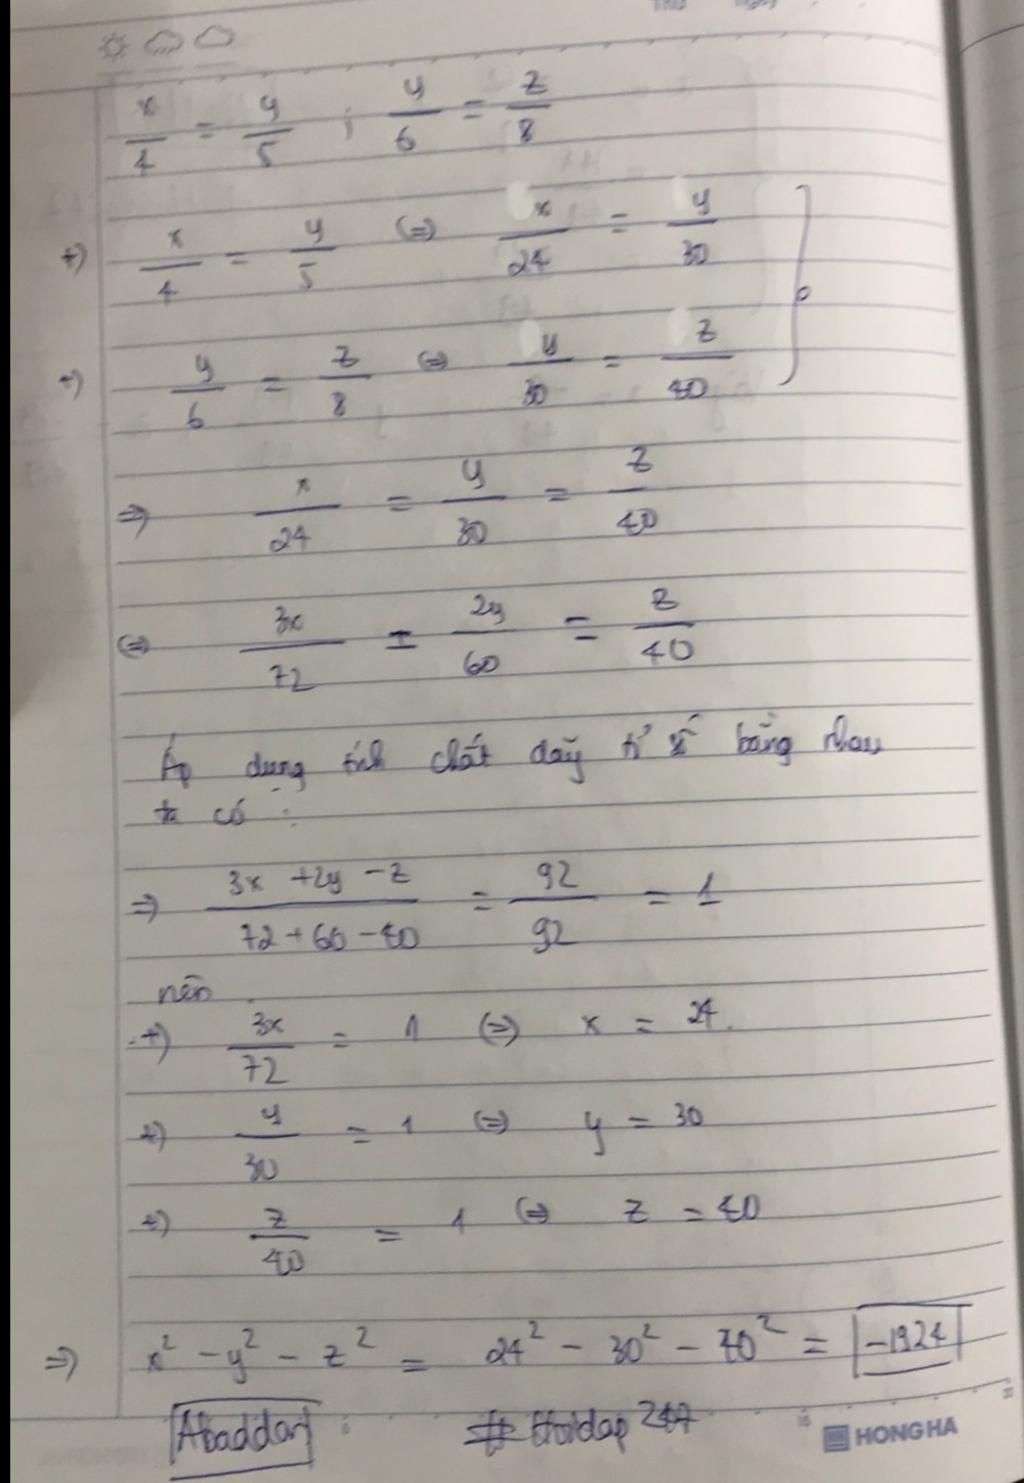 x/4 = y/5 ; y/6 = z/8
+) x/4 = y/5 (=) x/24 = y/30
+) y/6 = z/8 (=) y/30 = z/40
=> x/24 = y/30 = z/40
(=) 3x/72 = 2y/60 = z/40
Áp dụng tính chất dãy tỉ số bằng nhau
ta có :
=> (3x + 2y - z)/(72 + 60 - 40) = 92/92 = 1
nên
+) 3x/72 = 1 (=) x = 24.
+) y/30 = 1 (=) y = 30
+) z/40 = 1 (=) z = 40
=> x² - y² - z² = 24² - 30² - 40² = -1924
Abaddon # Hoidap 247
HONG HA